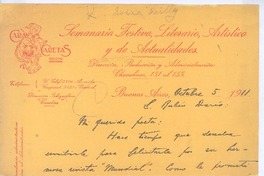 Semanario Festivo, Literario, Artístico
y de Actualidades.
CARAS
Y
CARETAS
Dirección, Redacción y Administración
Chacabuco, 151 al 155
Buenos Aires, Octubre 5 1911
S. Rubén Darío.
Mi querido poeta:
Hace tiempo que deseaba
escribirle para felicitarle por su her-
mosa revista "Mundial". Como le prometí